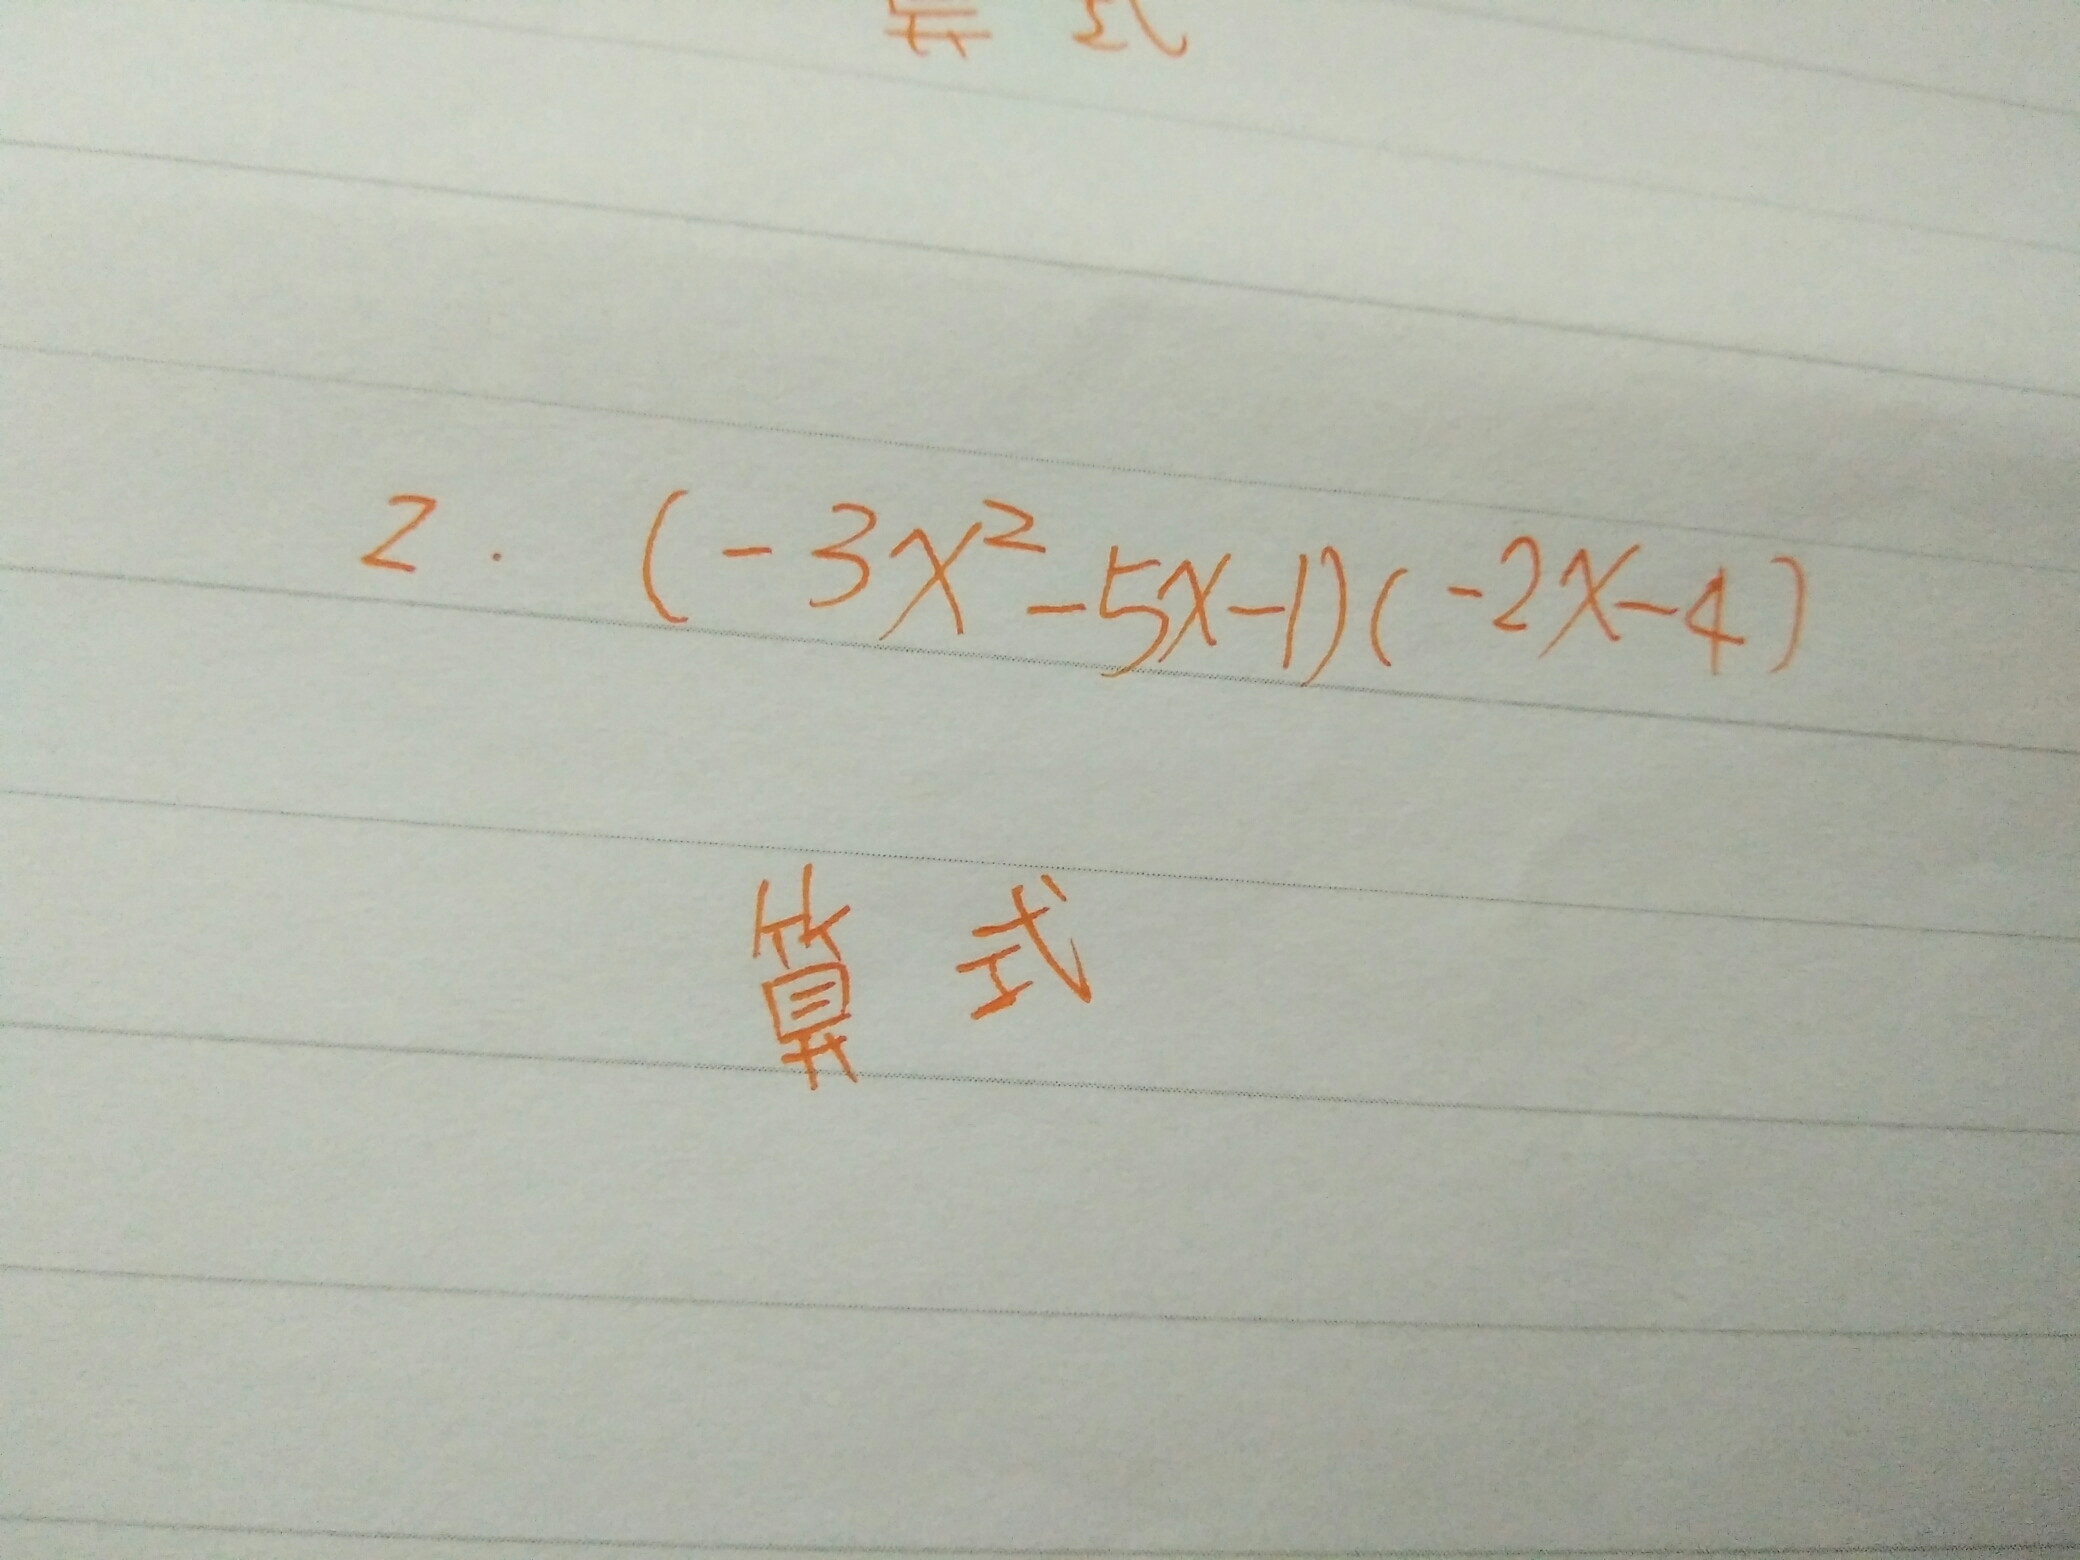 算式
2. (-3x²-5x-1)(-2x-4)
算式